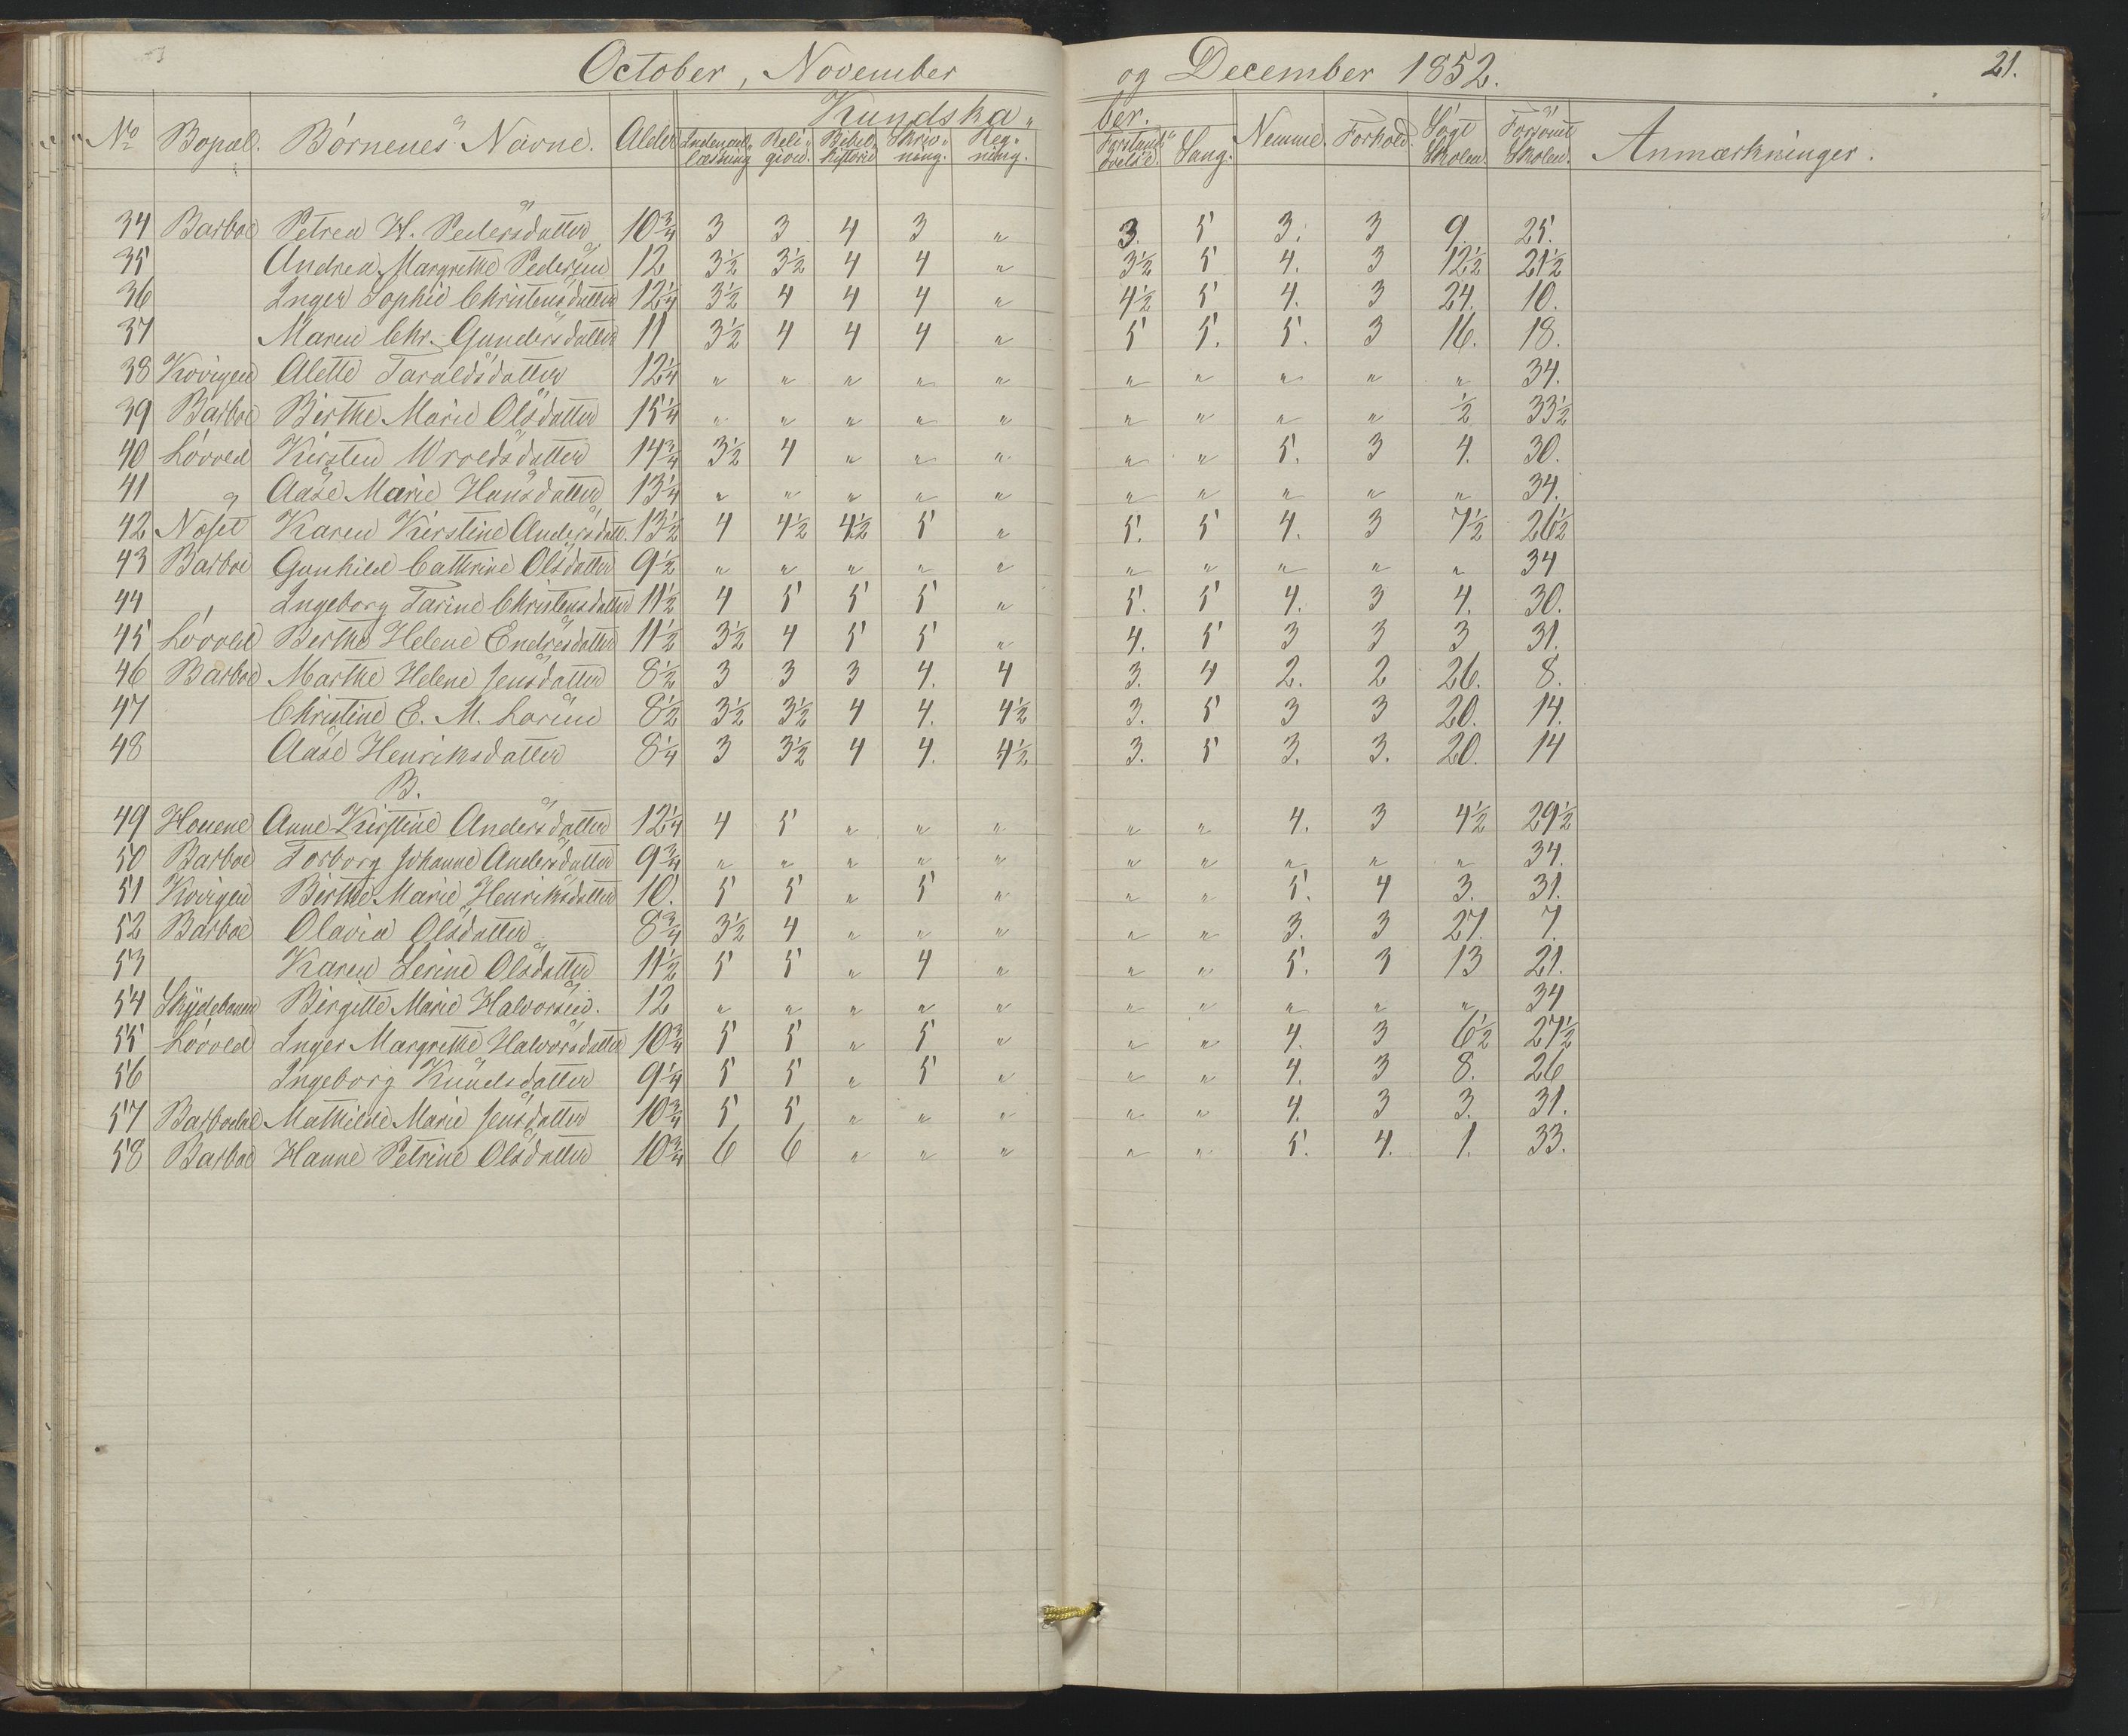 October, November og December 1852. 21.
Kundska„ ber.
No Bopæl. Børnenes Navne. Alder Indenad„læsning Reli„gion. Bibel„historie Skriv„ning. Reg„ning. Forstands„øvelse. Sang. Nemme. Forhold. Søgt Skolen. Forsømt Skolen. Anmærkninger.
34 Barboe Petrea H. Pedersdatter 10¾ 3 3 4 3 „ 3. 5 3. 3 9. 25.
35 Andrea Margrethe Pedersen 12 3½ 3½ 4 4 „ 3½ 5 4. 3 12½ 21½
36 Inger Sophie Christensdatter 12¼ 3½ 4 4 4 „ 4½ 5 4. 3 24. 10.
37 Maren Chr. Gundersdatter 11 3½ 4 4 4 „ 5 5. 5. 3 16. 18.
38 Kovigen Alette Taraldsdatter 12¼ „ „ „ „ „ „ „ „ „ „ 34.
39 Barboe Birthe Marie Olsdatter 15¼ „ „ „ „ „ „ „ „ „ ½ 33½
40 Løvold Kirsten Wroldsdatter 14¾ 3½ 4 „ „ „ „ „ 5. 3 4. 30.
41 „ Aase Marie Hansdatter 13¼ „ „ „ „ „ „ „ „ „ „ 34.
42 Neset Karen Kirstine Andersdatt. 13½ 4 4½ 4½ 5 „ 5. 5 4. 3 7½ 26½
43 Barboe Gunhild Cathrine Olsdatter 9½ „ „ „ „ „ „ „ „ „ „ 34
44 Ingeborg Tarine Christensdatter 11½ 4 5 5 5 „ 5. 5 4. 3 4. 30.
45 Løvold Berthe Helene Endresdatter 11½ 3½ 4 5 5 „ 4. 5 3 3 3 31.
46 Barboe Marthe Helene Jensdatter 8½ 3 3 3 4. 4 3. 4 2. 2 26. 8.
47 Christine E. M. Larsen 8½ 3½ 3½ 4 4. 4½ 3. 5 3 3 20. 14.
48 Aase Henriksdatter 8¼ 3 3½ 4 4. 4½ 3. 5 3. 3. 20. 14
B.
49 Houene Anne Kirstine Andersdatter 12¼ 4 5 „ „ „ „ „ 4. 3 4½ 29½
50 Barboe Torborg Johanne Andersdatter 9¾ „ „ „ „ „ „ „ „ „ „ 34.
51 Kovigen Birthe Marie Henriksdatter 10. 5 5 „ 5 „ „ „ 5. 4 3. 31.
52 Barboe Olavia Olsdatter 8¾ 3½ 4 „ „ „ „ „ 3. 3 27. 7.
53 Karen Serine Olsdatter 11½ 5 5 „ 4 „ „ „ 5. 3 13 21.
54 Skydebanen Birgitte Marie Halvorsen. 12 „ „ „ „ „ „ „ „ „ „ 34
55 Løvold Inger Margrethe Halvorsdatter 10¾ 5 5 „ 5 „ „ „ 4. 3 6½ 27½
56 Ingeborg Knudsdatter 9¼ 5 5 „ 5 „ „ „ 4. 3 8. 26
57 Barbodal Mathilde Marie Jensdatter 10¾ 5 5 „ „ „ „ „ 4. 3 3. 31.
58 Barboe Hanne Petrine Olsdatter 10¾ 6 6 „ „ „ „ „ 5. 4. 1. 33.